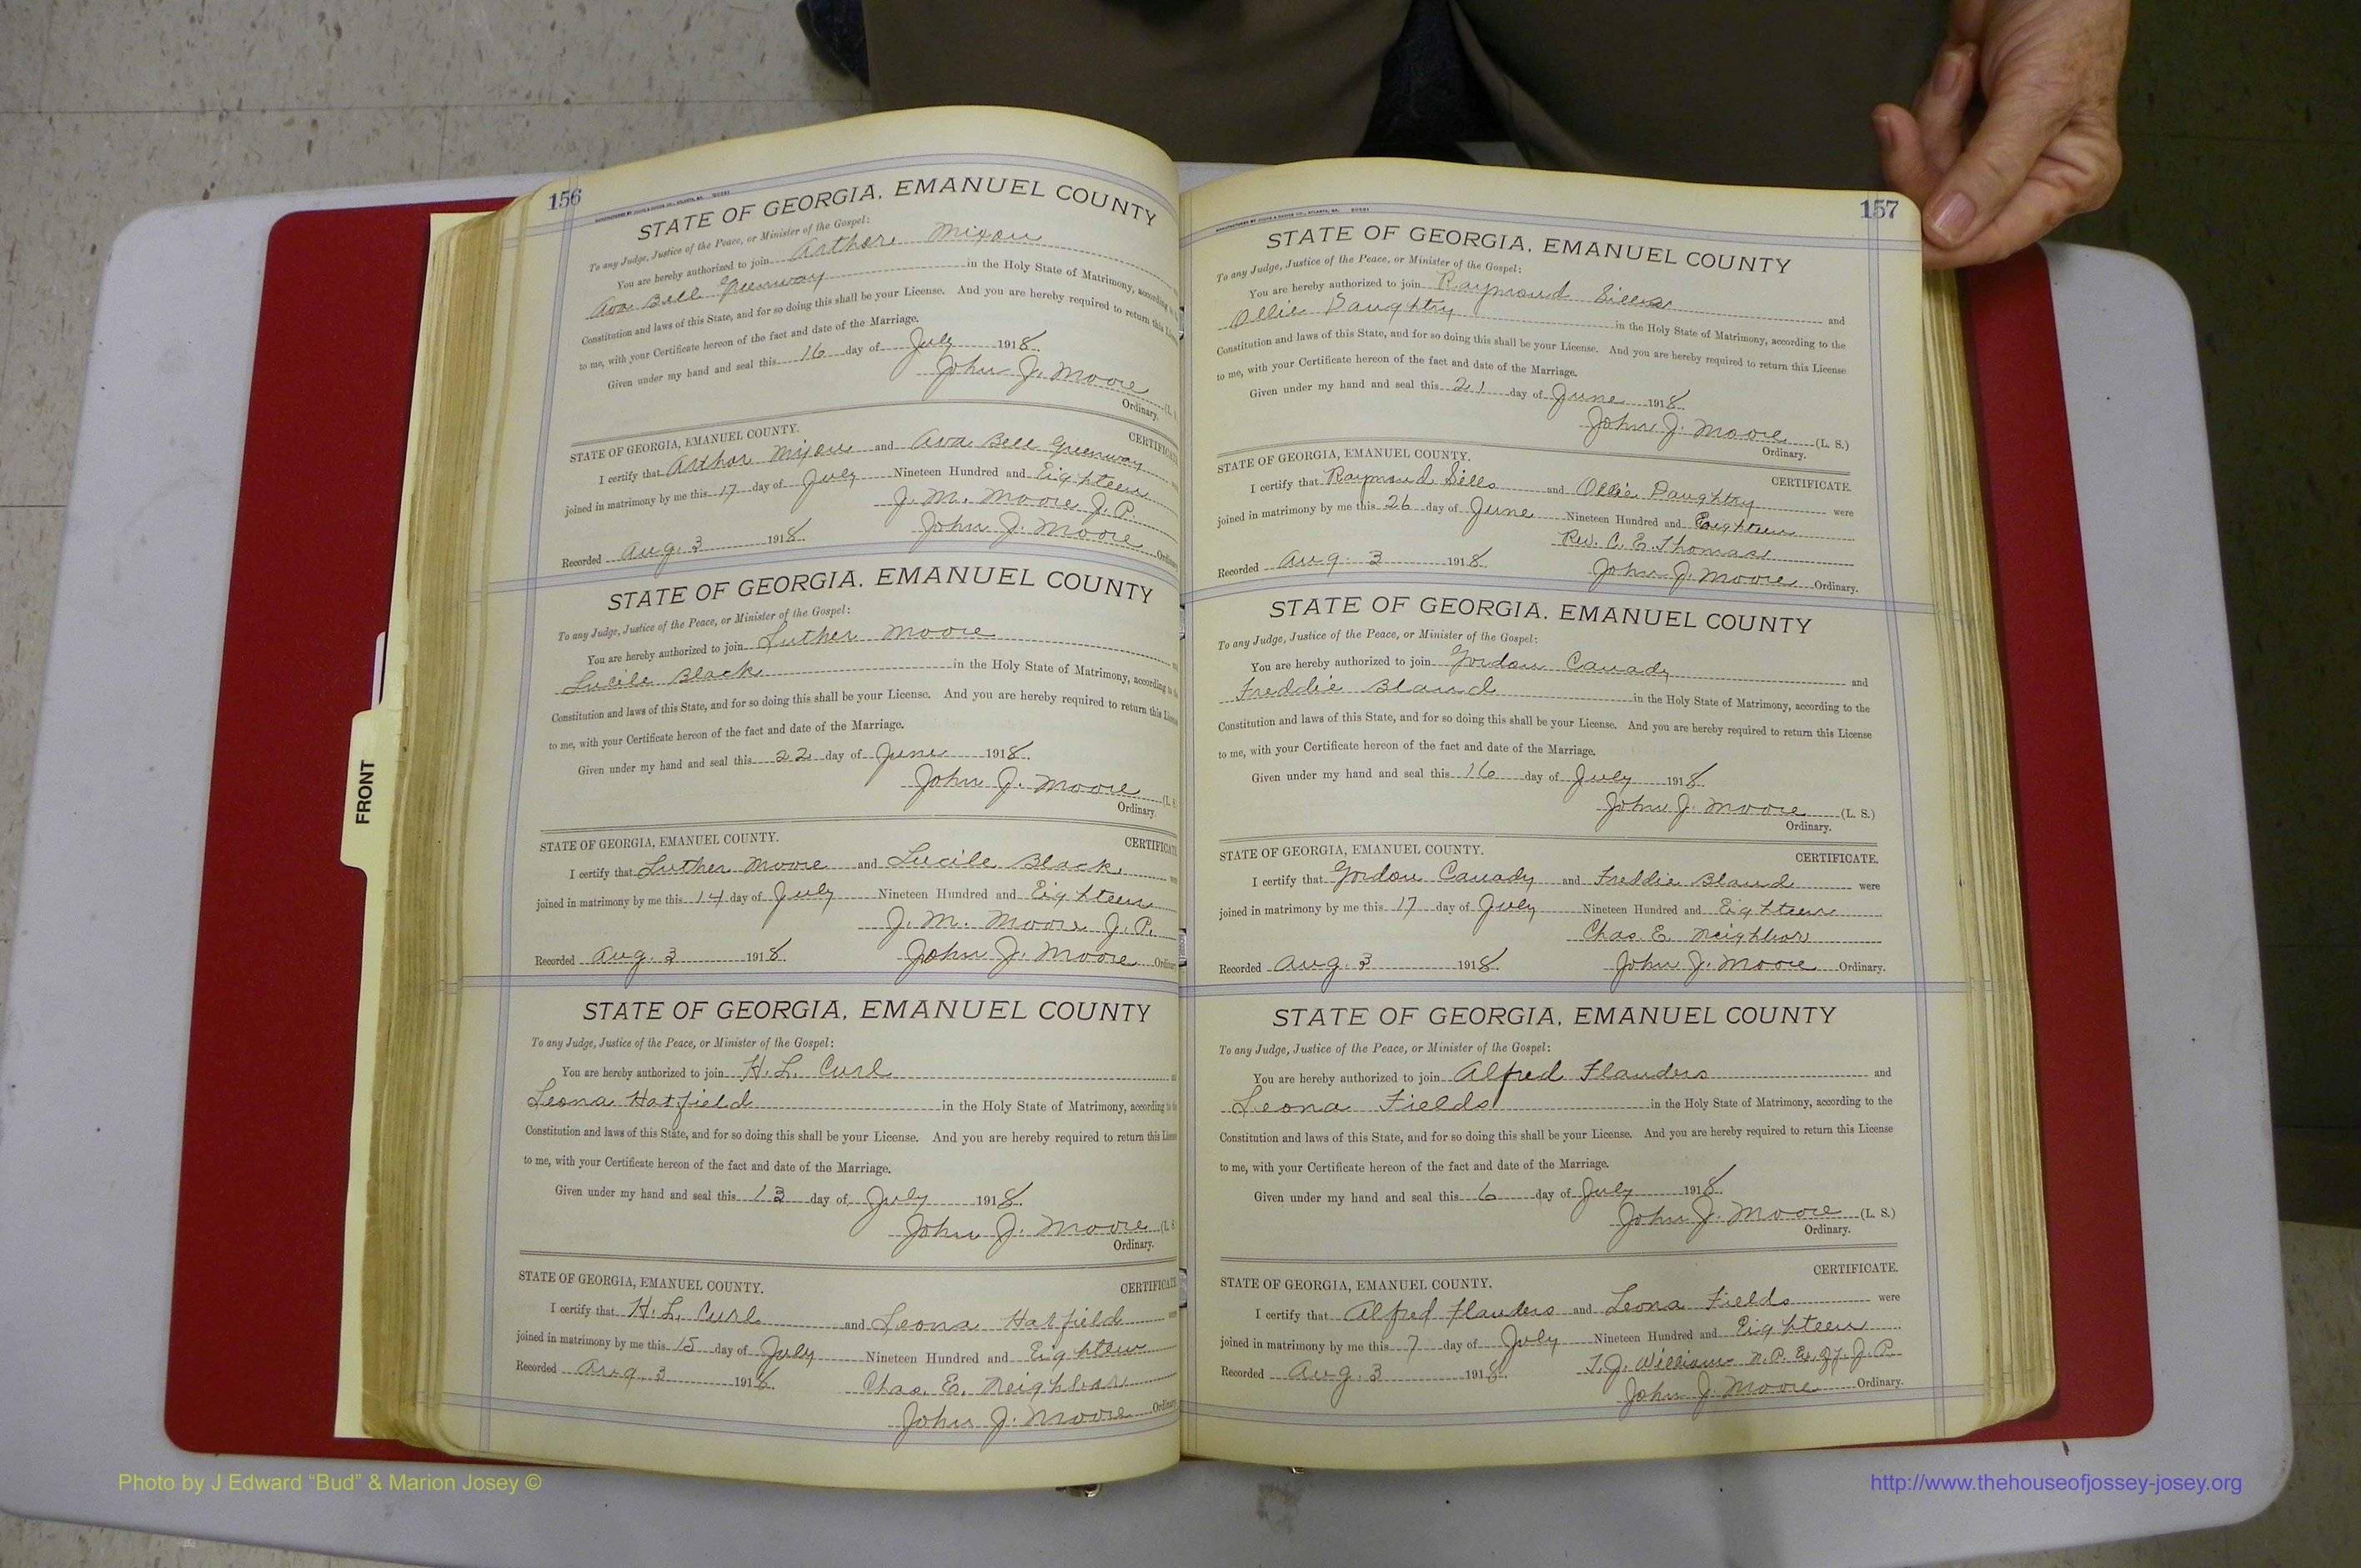 156
STATE OF GEORGIA, EMANUEL COUNTY
To any Judge, Justice of the Peace, or Minister of the Gospel:
You are hereby authorized to join Arthor Mixon
Ava Bell Greenway in the Holy State of Matrimony, according to
Constitution and laws of this State, and for so doing this shall be your License. And you are hereby required to return this
to me, with your Certificate hereon of the fact and date of the Marriage.
Given under my hand and seal this 16 day of July 1918.
John J. Moore (L.
Ordinary.
STATE OF GEORGIA, EMANUEL COUNTY. CERTIFICAT
I certify that Arthor Mixon and Ava Bell Greenway
joined in matrimony by me this 17 day of July Nineteen Hundred and Eighteen
J. M. Moore J. P.
Recorded Aug. 3 1918. John J. Moore Ordinary
STATE OF GEORGIA, EMANUEL COUNTY
To any Judge, Justice of the Peace, or Minister of the Gospel:
You are hereby authorized to join Luther Moore
Lucile Black in the Holy State of Matrimony, according to the
Constitution and laws of this State, and for so doing this shall be your License. And you are hereby required to return this License
to me, with your Certificate hereon of the fact and date of the Marriage.
Given under my hand and seal this 22 day of June 1918.
John J. Moore (L. S.
Ordinary.
STATE OF GEORGIA, EMANUEL COUNTY. CERTIFICATE
I certify that Luther Moore and Lucile Black
joined in matrimony by me this 14 day of July Nineteen Hundred and Eighteen
J. M. Moore J. P.
Recorded Aug. 3 1918. John J. Moore Ordinary
STATE OF GEORGIA, EMANUEL COUNTY
To any Judge, Justice of the Peace, or Minister of the Gospel:
You are hereby authorized to join H. L. Curl
Leona Hatfield in the Holy State of Matrimony, according to the
Constitution and laws of this State, and for so doing this shall be your License. And you are hereby required to return this License
to me, with your Certificate hereon of the fact and date of the Marriage.
Given under my hand and seal this 13 day of July 1918.
John J. Moore (L. S.
Ordinary.
STATE OF GEORGIA, EMANUEL COUNTY. CERTIFICATE
I certify that H. L. Curl and Leona Hatfield
joined in matrimony by me this 15 day of July Nineteen Hundred and Eighteen
Recorded Aug. 3 1918. Chas. E. Neighbor
John J. Moore Ordinary
157
STATE OF GEORGIA, EMANUEL COUNTY
To any Judge, Justice of the Peace, or Minister of the Gospel:
You are hereby authorized to join Raymond Sills and
Ollie Daughtry in the Holy State of Matrimony, according to the
Constitution and laws of this State, and for so doing this shall be your License. And you are hereby required to return this License
to me, with your Certificate hereon of the fact and date of the Marriage.
Given under my hand and seal this 21 day of June 1918.
John J. Moore (L. S.)
Ordinary.
STATE OF GEORGIA, EMANUEL COUNTY. CERTIFICATE.
I certify that Raymond Sills and Ollie Daughtry were
joined in matrimony by me this 26 day of June Nineteen Hundred and Eighteen
Rev. C. E. Thomas
Recorded Aug. 3 1918. John J. Moore Ordinary.
STATE OF GEORGIA, EMANUEL COUNTY
To any Judge, Justice of the Peace, or Minister of the Gospel:
You are hereby authorized to join Gordon Canady and
Freddie Bland in the Holy State of Matrimony, according to the
Constitution and laws of this State, and for so doing this shall be your License. And you are hereby required to return this License
to me, with your Certificate hereon of the fact and date of the Marriage.
Given under my hand and seal this 16 day of July 1918.
John J. Moore (L. S.)
Ordinary.
STATE OF GEORGIA, EMANUEL COUNTY. CERTIFICATE.
I certify that Gordon Canady and Freddie Bland were
joined in matrimony by me this 17 day of July Nineteen Hundred and Eighteen
Chas. E. Neighbor
Recorded Aug. 3 1918. John J. Moore Ordinary.
STATE OF GEORGIA, EMANUEL COUNTY
To any Judge, Justice of the Peace, or Minister of the Gospel:
You are hereby authorized to join Alfred Flanders and
Leona Fields in the Holy State of Matrimony, according to the
Constitution and laws of this State, and for so doing this shall be your License. And you are hereby required to return this License
to me, with your Certificate hereon of the fact and date of the Marriage.
Given under my hand and seal this 6 day of July 1918.
John J. Moore (L. S.)
Ordinary.
CERTIFICATE.
STATE OF GEORGIA, EMANUEL COUNTY.
I certify that Alfred Flanders and Leona Fields were
joined in matrimony by me this 7 day of July Nineteen Hundred and Eighteen
Recorded Aug. 3 1918. T. J. Williams N. P. Ex. Of. J. P.
John J. Moore Ordinary.
FRONT
Photo by J Edward “Bud” & Marion Josey ©
http://www.thehouseofjossey-josey.org